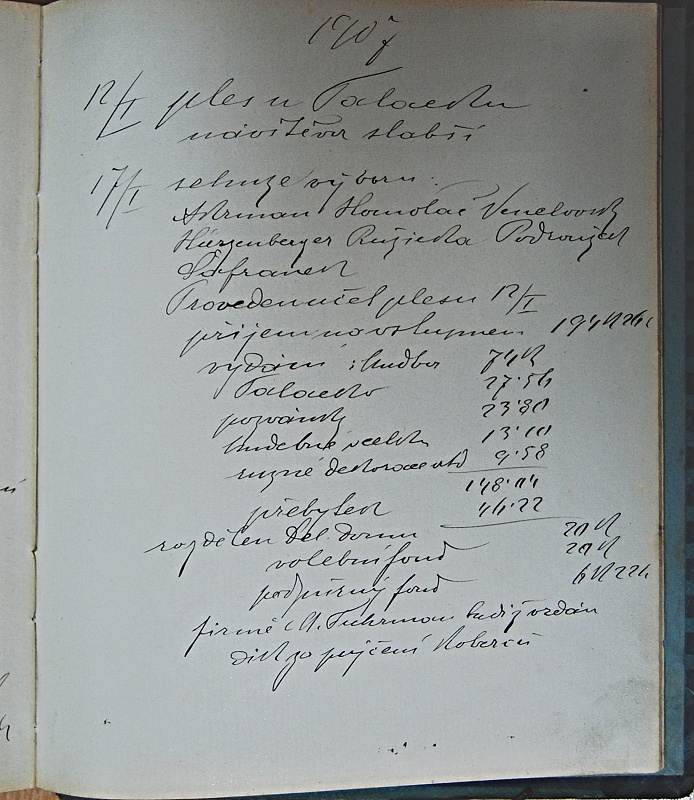 1907
12/I ples u Palaceho
návštěva slabší
17/I schuze výboru:
Homoláč
Hirzenberger Ružicka
Šafranek
Proveden účet plesu 12/I
příjem na vstupném 194K 26h
vydání: hudba 74K
27·56
pozvánky 23·80
hudebné 13·10
ruzné dekorace atd 9·58
148·04
přebytek 46·22
rozdělen Děl. domu 20 K
volební fond 20 K
podpurný fond 6K 22h
firmě A. Fuhrman budiž vzdán
dík za pujčení koberců